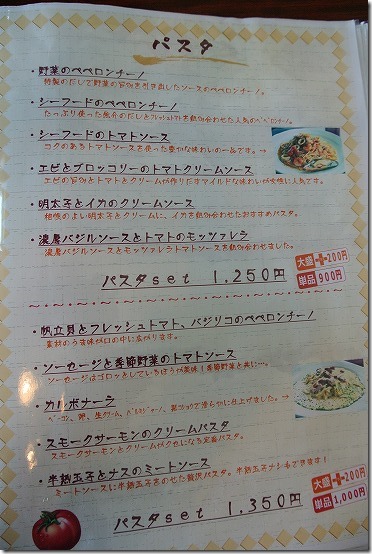 パスタ
・野菜のペペロンチーノ
特製のだしで野菜の旨みを引き出したソースのペペロンチーノ。
・シーフードのペペロンチーノ
たっぷり使った魚介のだしとフレッシュトマトを組み合わせた人気のペペロンチーノ。
・シーフードのトマトソース
コクのあるトマトソースを使った豊かな味わいの一品です。→
・エビとブロッコリーのトマトクリームソース
エビの旨みとトマトとクリームが作りだすマイルドな味わいが女性に人気です。
・明太子とイカのクリームソース
相性のよい明太子とクリームに、イカを組み合わせたおすすめパスタ。
・濃厚バジルソースとトマトのモッツァレラ
濃厚バジルソースとモッツァレラトマトソースを組み合わせました。
パスタset 1,250円
大盛+200円
単品 900円
・帆立貝とフレッシュトマト、バジリコのペペロンチーノ
素材のうま味が口の中に広がります。
・ソーセージと季節野菜のトマトソース
ソーセージはゴロッとしているほうが美味!季節野菜と共に…。
・カルボナーラ
ベーコン、卵、生クリーム、パルミジャーノ、黒コショウで滑らかに仕上げました。→
・スモークサーモンのクリームパスタ
スモークサーモンとクリームがクセになる定番パスタ。
・半熟玉子とナスのミートソース
ミートソースに半熟玉子をのせた贅沢パスタ。半熟玉子ナシもできます!
パスタset 1,350円
大盛+200円
単品 1,000円